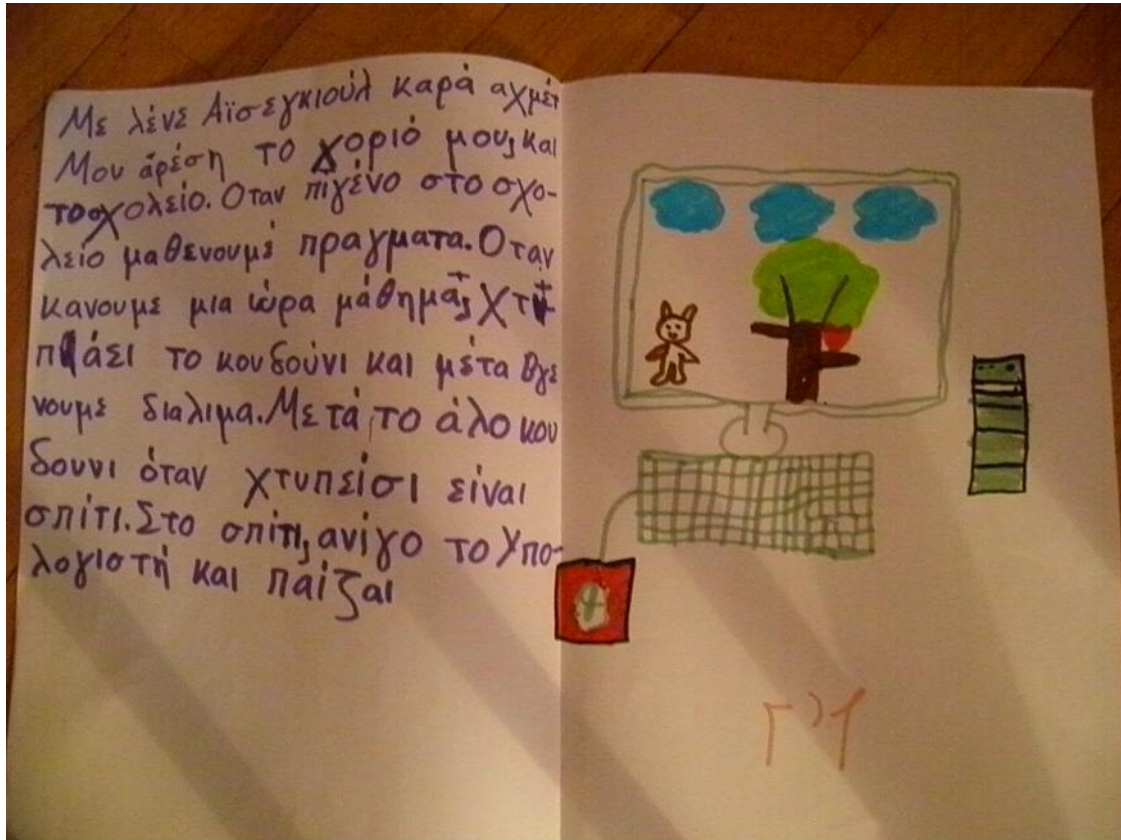 Με λένε Αϊσεγκιούλ καρά αχμέτ
Μου άρέση το χοριό μου, και
το σχολείο. Οταν πιγένο στο σχο-
λείο μαθενουμέ πραγματα. Οταν
κανουμε μια ώρα μάθημα, χτυ
πάει το κουδούνι και μέτα βγε
νουμε διαλιμα. Μετά, το άλο κου
δουνι όταν χτυπείσι είναι
σπίτι. Στο σπίτι, ανίγο το Υπο-
λογιστή και παίζαι